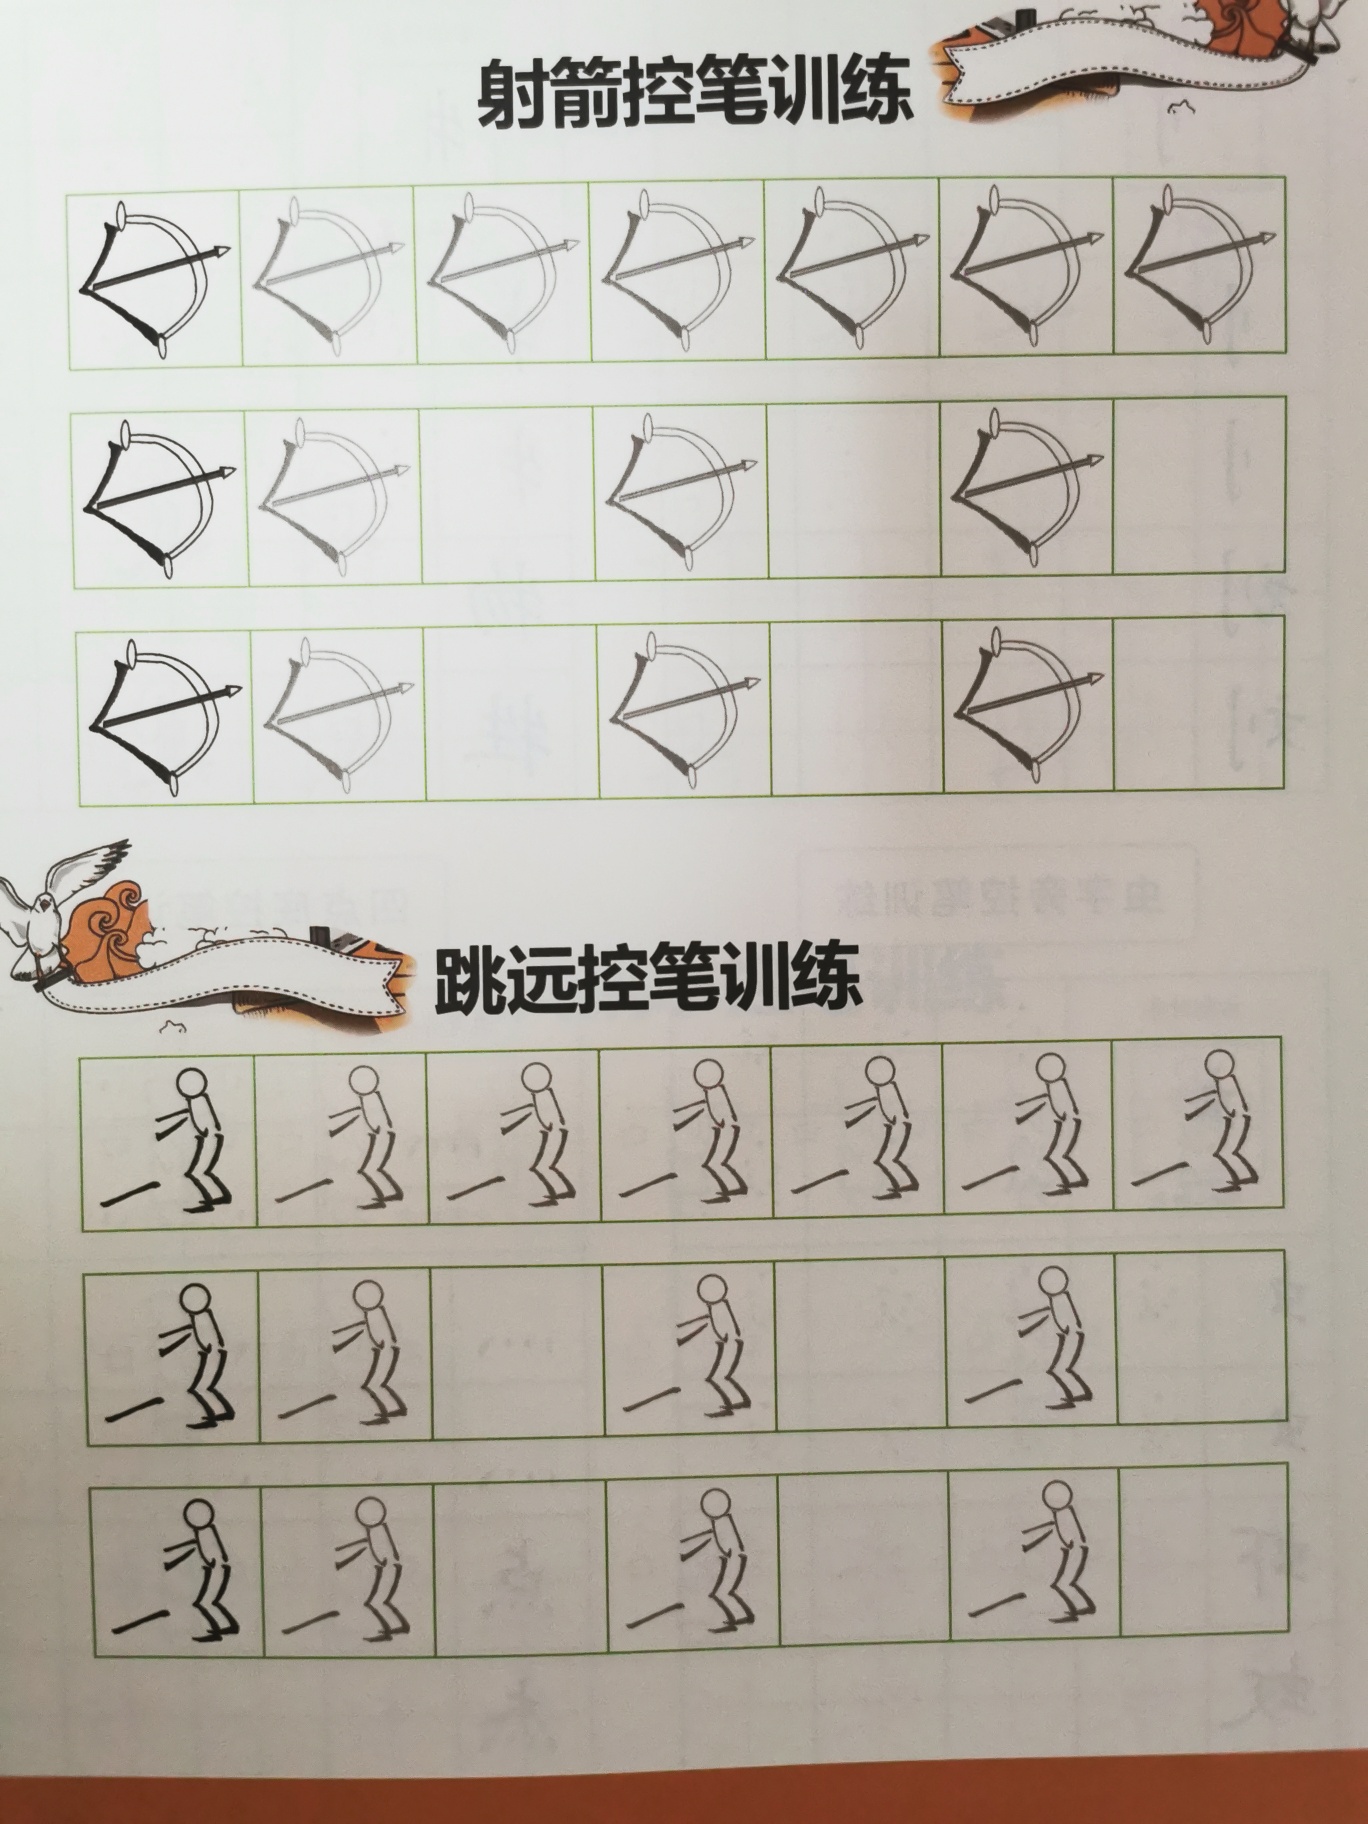 射箭控笔训练
跳远控笔训练